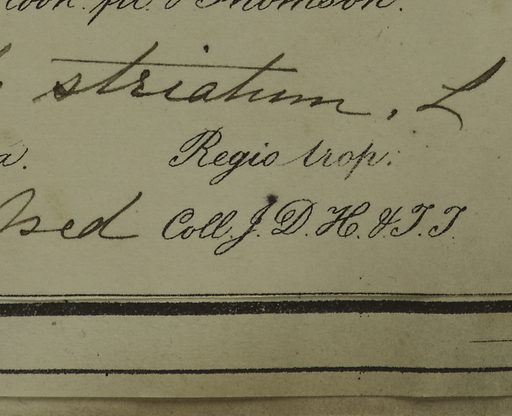 Hook. fil. & Thomson.
striatum, L
a. Regio trop.
Coll. J. D. H. & T. T.